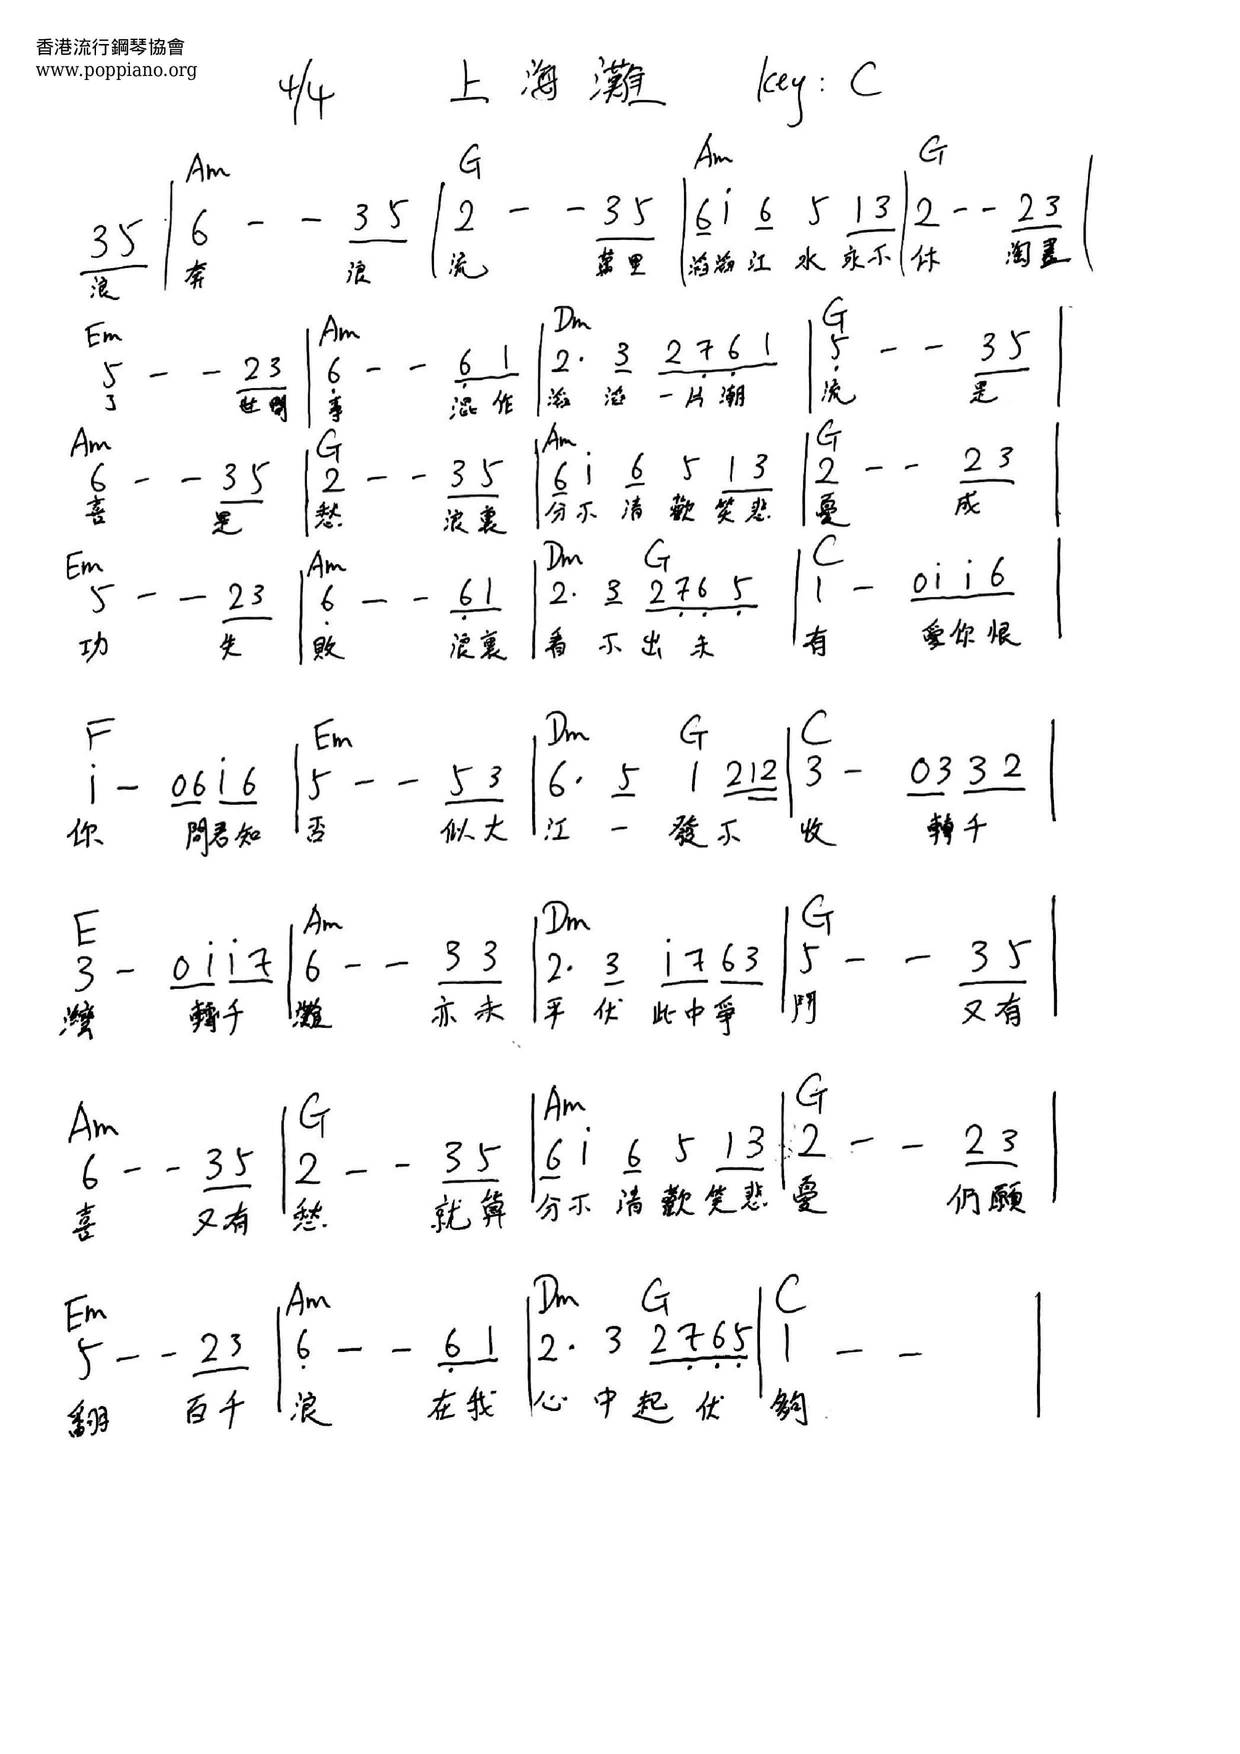 香港流行鋼琴協會
www.poppiano.org
4/4 上海灘 key: C
Am G Am G
35 | 6 - - 35 | 2 - - 35 | 6 i 6 5 13 | 2 - - 23 |
浪 奔 浪 流 萬里 滔滔江水永不休 淘盡
Em Am Dm G
5 - - 23 | 6 - - 61 | 2. 3 2761 | 5 - - 35 |
了 世間 事 混作 滔滔一片潮 流 是
Am G Am G
6 - - 35 | 2 - - 35 | 6 i 6 5 13 | 2 - - 23 |
喜 是 愁 浪裏 分不清歡笑悲 憂 成
Em Am Dm G C
5 - - 23 | 6 - - 61 | 2. 3 2765 | 1 - 0ii6 |
功 失 敗 浪裏 看不出未 有 愛你恨
F Em Dm G C
i - 06i6 | 5 - - 53 | 6. 5 1 212 | 3 - 0332 |
你 問君知 否 似大 江一發不 收 轉千
E Am Dm G
3 - 0ii7 | 6 - - 33 | 2. 3 i763 | 5 - - 35 |
灣 轉千 灘 亦未 平伏此中爭 鬥 又有
Am G Am G
6 - - 35 | 2 - - 35 | 6 i 6 5 13 | 2 - - 23 |
喜 又有 愁 就算 分不清歡笑悲 憂 仍願
Em Am Dm G C
5 - - 23 | 6 - - 61 | 2. 3 2765 | 1 - - |
翻 百千 浪 在我 心中起伏 夠